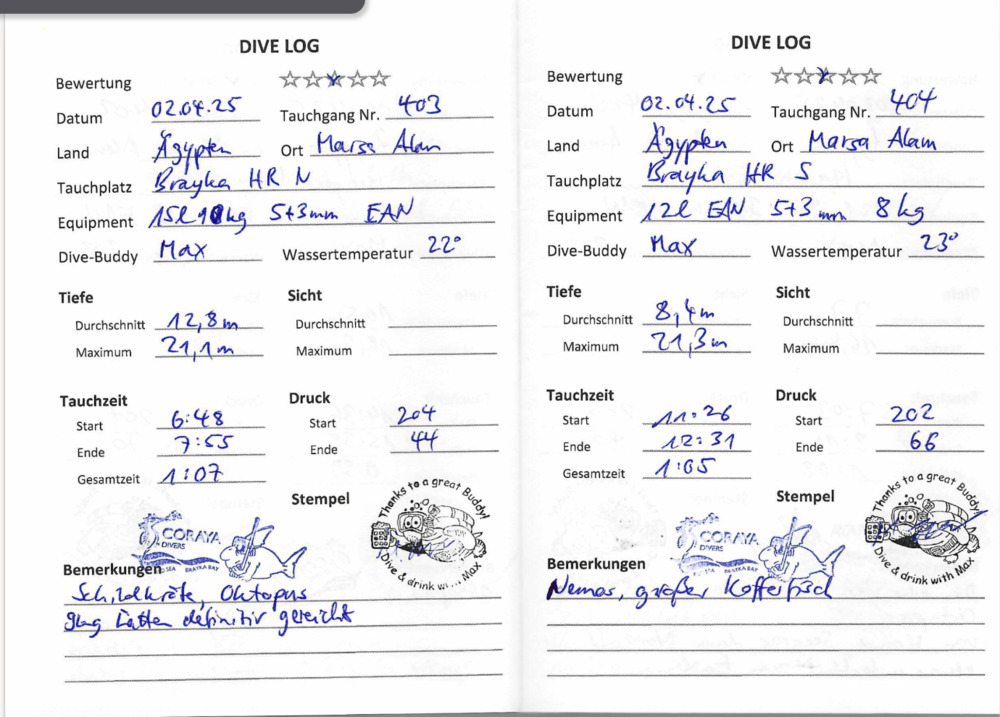 DIVE LOG
Bewertung
Datum 02.04.25 Tauchgang Nr. 403
Land Ägypten Ort Marsa Alam
Tauchplatz Brayka HR N
Equipment 15l kg 5+3mm EAN
Dive-Buddy Max Wassertemperatur 22°
Tiefe Sicht
Durchschnitt 12,8m Durchschnitt
Maximum 21,1m Maximum
Tauchzeit Druck
Start 6:48 Start 204
Ende 7:55 Ende 44
Gesamtzeit 1:07
Stempel
Thanks to a great Buddy!
CORAYA
DIVERS
Dive & drink Max
Bemerkungen
Schildkröte, Oktopus
hätten definitiv gereicht
DIVE LOG
Bewertung
Datum 02.04.25 Tauchgang Nr. 404
Land Ägypten Ort Marsa Alam
Tauchplatz Brayka HR S
Equipment 12l EAN 5+3mm 8kg
Dive-Buddy Max Wassertemperatur 23°
Tiefe Sicht
Durchschnitt 8,4m Durchschnitt
Maximum 21,3m Maximum
Tauchzeit Druck
Start 11:26 Start 202
Ende 12:31 Ende 66
Gesamtzeit 1:05
Stempel
Thanks to a great Buddy!
CORAYA
DIVERS
SEA BRAYKA BAY
Dive & drink with Max
Bemerkungen
Nemos, großer Kofferfisch